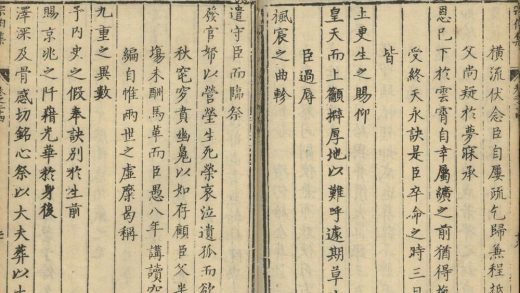 橫流伏念臣自屢疏乞歸兼程抵
父尚疑於夢寐承
恩已下於雲霄自幸屬纊之前猶得
受終天永訣是臣卒命之時三日
皆
上更生之賜仰
皇天而上籲擗厚地以難呼遽期草
臣過辱
楓宸之曲軫
遣守臣而臨祭
發官帑以營塋生死榮哀泣遺孤而欲
秋窀穸賁幽鬼以如存顧臣父半
塲未酬馬革而臣愚八年講讀
編自惟兩世之虛縻曷稱
九重之異數
予內史之假奉訣別於生前
賜京兆之阡藉光華於身後
澤深及骨感切銘心祭以大夫葬以